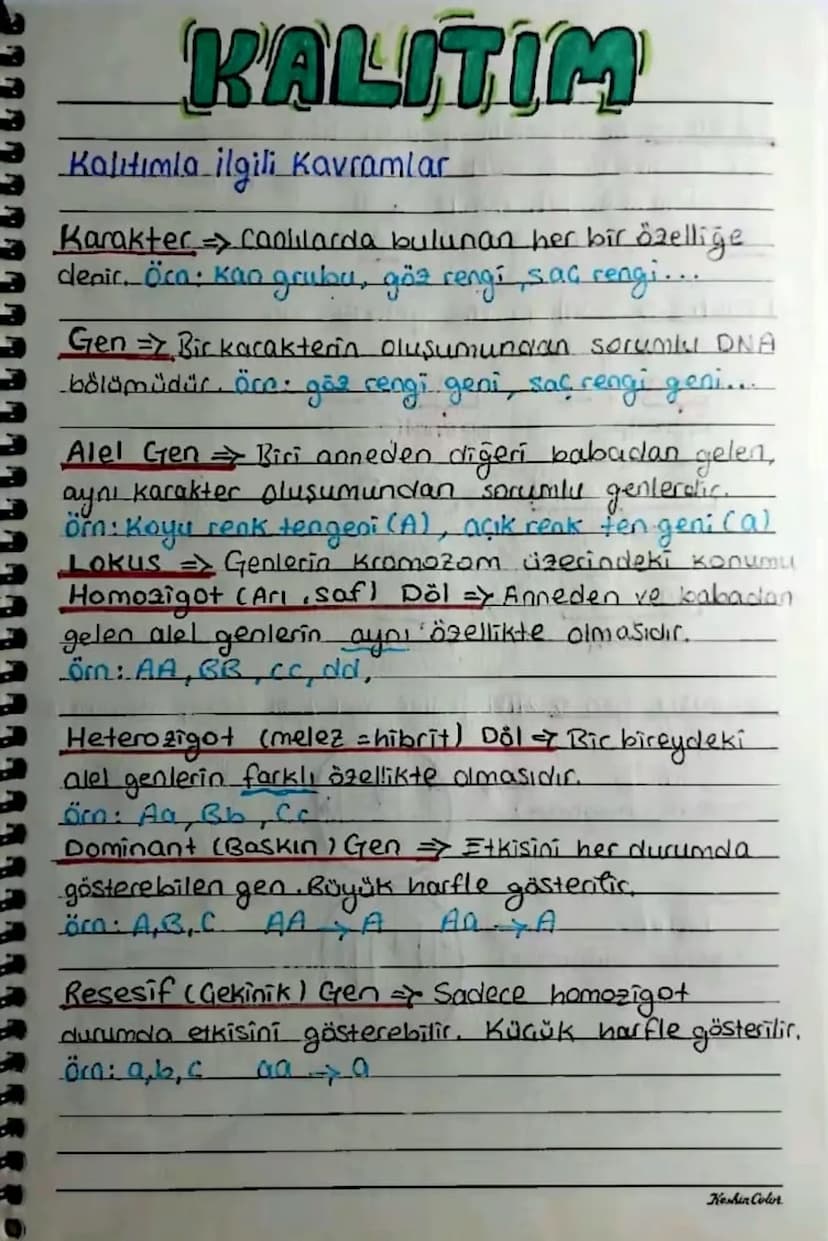 KALITIM
Kalıtımla ilgili Kavramlar
Karakter => Canlılarda bulunan her bir özelliğe
denir. Örn: Kan grubu, göz rengi, saç rengi...
Gen => Bir karakterin oluşumundan sorumlu DNA
bölümüdür. Örn: göz rengi geni, saç rengi geni...
Alel Gen => Biri anneden diğeri babadan gelen,
aynı karakter oluşumundan sorumlu genlerdir.
Örn: Koyu renk ten geni (A), açık renk ten geni (a)
Lokus => Genlerin Kromozom üzerindeki konumu
Homozigot (Arı, saf) Döl => Anneden ve babadan
gelen alel genlerin aynı özellikte olmasıdır.
Örn: AA, BB, cc, dd,
Heterozigot (melez = hibrit) Döl => Bir bireydeki
alel genlerin farklı özellikte olmasıdır.
Örn: Aa, Bb, Cc
Dominant (Baskın) Gen => Etkisini her durumda
gösterebilen gen. Büyük harfle gösterilir.
Örn: A, B, C AA → A Aa → A
Resesif (Çekinik) Gen => Sadece homozigot
durumda etkisini gösterebilir. Küçük harfle gösterilir.
Örn: a, b, c aa → a
Keskin Color